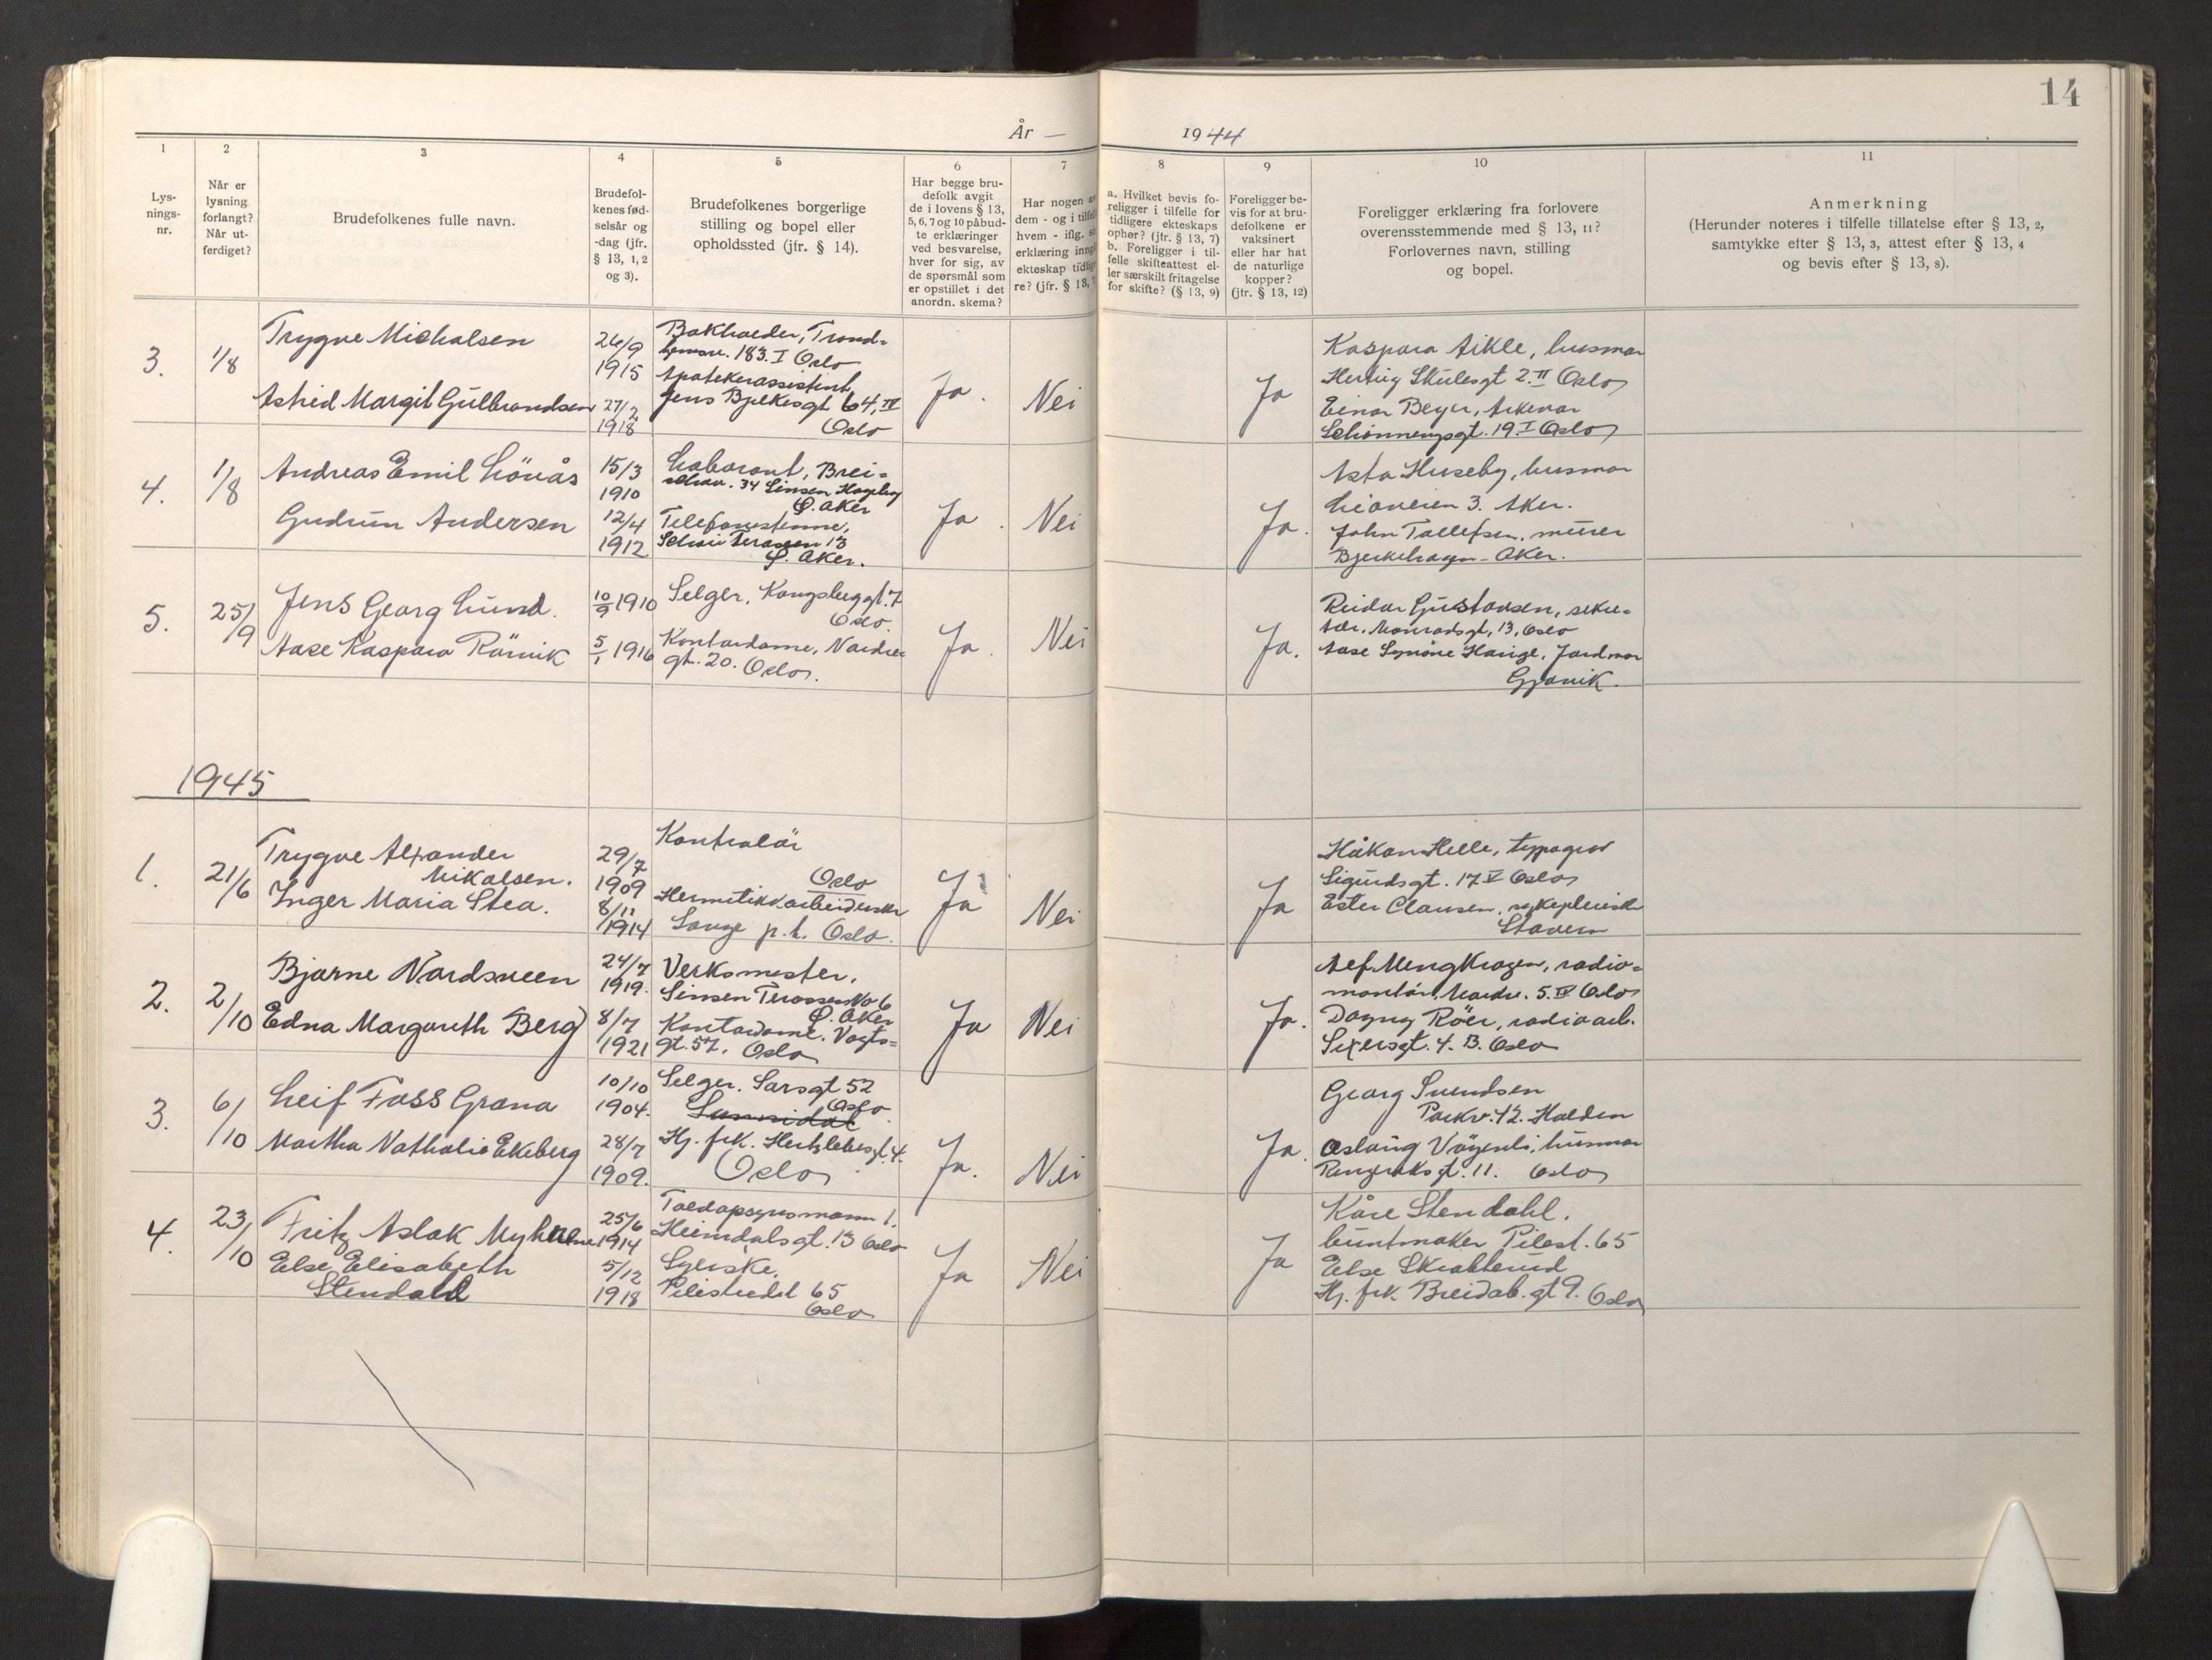 14
År — 1944
1
2
3
4
5
6
7
8
9
10
11
Lys-
nings-
nr.
Når er
lysning
forlangt?
Når ut-
ferdiget?
Brudefolkenes fulle navn.
Brudefol-
kenes fød-
selsår og
-dag (jfr.
§ 13, 1, 2
og 3).
Brudefolkenes borgerlige
stilling og bopel eller
opholdssted (jfr. § 14).
Har begge bru-
defolk avgit
de i lovens § 13,
5, 6, 7 og 10 påbud-
te erklæringer
ved besvarelse,
hver for sig, av
de spørsmål som
er opstillet i det
anordn. skema?
Har nogen av
dem - og i tilfel
hvem - iflg. si
erklæring inng
ekteskap tidlig
re? (jfr. § 13, 7
a. Hvilket bevis fo-
religger i tilfelle for
tidligere ekteskaps
ophør? (jfr. § 13, 7)
b. Foreligger i til-
felle skifteattest el-
ler særskilt fritagelse
for skifte? (§ 13, 9)
Foreligger be-
vis for at bru-
defolkene er
vaksinert
eller har hat
de naturlige
kopper?
(jfr. § 13, 12)
Foreligger erklæring fra forlovere
overensstemmende med § 13, 11?
Forlovernes navn, stilling
og bopel.
Anmerkning
(Herunder noteres i tilfelle tillatelse efter § 13, 2,
samtykke efter § 13, 3, attest efter § 13, 4
og bevis efter § 13, 8).
3.
1/8
Trygve Michalsen
Astrid Margit Gulbrandsen
26/9
1915
27/2
1918
Bokholder, Trond-
hemsv. 183. I Oslo
Apotekerassistent,
Jens Bjelkesgt 64, IV
Oslo
Ja.
Nei
Ja
Kaspara Aikle, husmor
Hertug Skulesgt 2. II Oslo
Einar Beyer, Arkivar
Schønningsgt. 19 I Oslo
4.
1/8
Andreas Emil Lövås
Gudrun Andersen
15/3
1910
12/4
1912
Laborant, Brei-
34 Sinsen Hageby
Ø. Aker
Telefonistinne,
13
Ø. Aker.
Ja.
Nei
Ja.
Asta Huseby, husmor
Lianveien 3. Aker.
John Tollefsen, murer
Bjerkehagen - Aker.
5.
25/9
Jens Georg Lund.
Aase Kaspara Rörvik
10/9 1910
5/1 1916
Selger, Kongsberggt. 7
Oslo.
Kontordame, Nordre
gt. 20. Oslo.
Ja.
Nei
Ja.
Reidar Gustavsen, sekre-
tær, Monradsgt, 13, Oslo
Aase Synöve Hauge, Jordmor
Gjøvik.
1945
1.
21/6
Trygve Alxander
Mikalsen.
Inger Maria Stea.
29/7
1909
8/11
1914
Kontrolör
Oslo
Hermetikkarbeiderske
Sauge p.t. Oslo.
Ja
Nei
Ja
Håkon Helle, typograf
Sigurdsgt. 17 V Oslo
Ester Clausen, sykepleierske
Stavern
2.
2/10
Bjarne Nordsveen
Edna Margareth Berg
24/7
1919.
8/7
1921
Verksmester,
Sinsen Terassen No 6
Ø. Aker
Kontordame. Vogts-
gt. 57, Oslo
Ja
Nei
Ja.
Leif Mengkrogen, radio-
montör, Nordv. 5. IV Oslo
Dagny Röer, radioarb.
Sexesgt. 4. B. Oslo
3.
6/10
Leif Foss Grana
Martha Nathalie Ekeberg
10/10
1904.
28/7
1909.
Selger. Sarsgt 52
Oslo
Sunndal
Hj. frk. Hertzlebsgt. 4.
Oslo
Ja.
Nei
Ja.
Georg Svendsen
Parkv. 12. Halden
Aslaug Vågenli, husmor
11. Oslo
4.
23/10
Fritz Aslak Myhrene
Else Elisabeth
Stendahl
25/6
1914
5/12
1918
Toldopsynsmann 1.
Heimdalsgt. 13 Oslo
Syerske.
Pilestredet 65
Oslo
Ja
Nei
Ja
Kåre Stendahl.
buntmaker Pilest. 65
Else Skrabberud
Hj. frk. Breidab. gt 9. Oslo